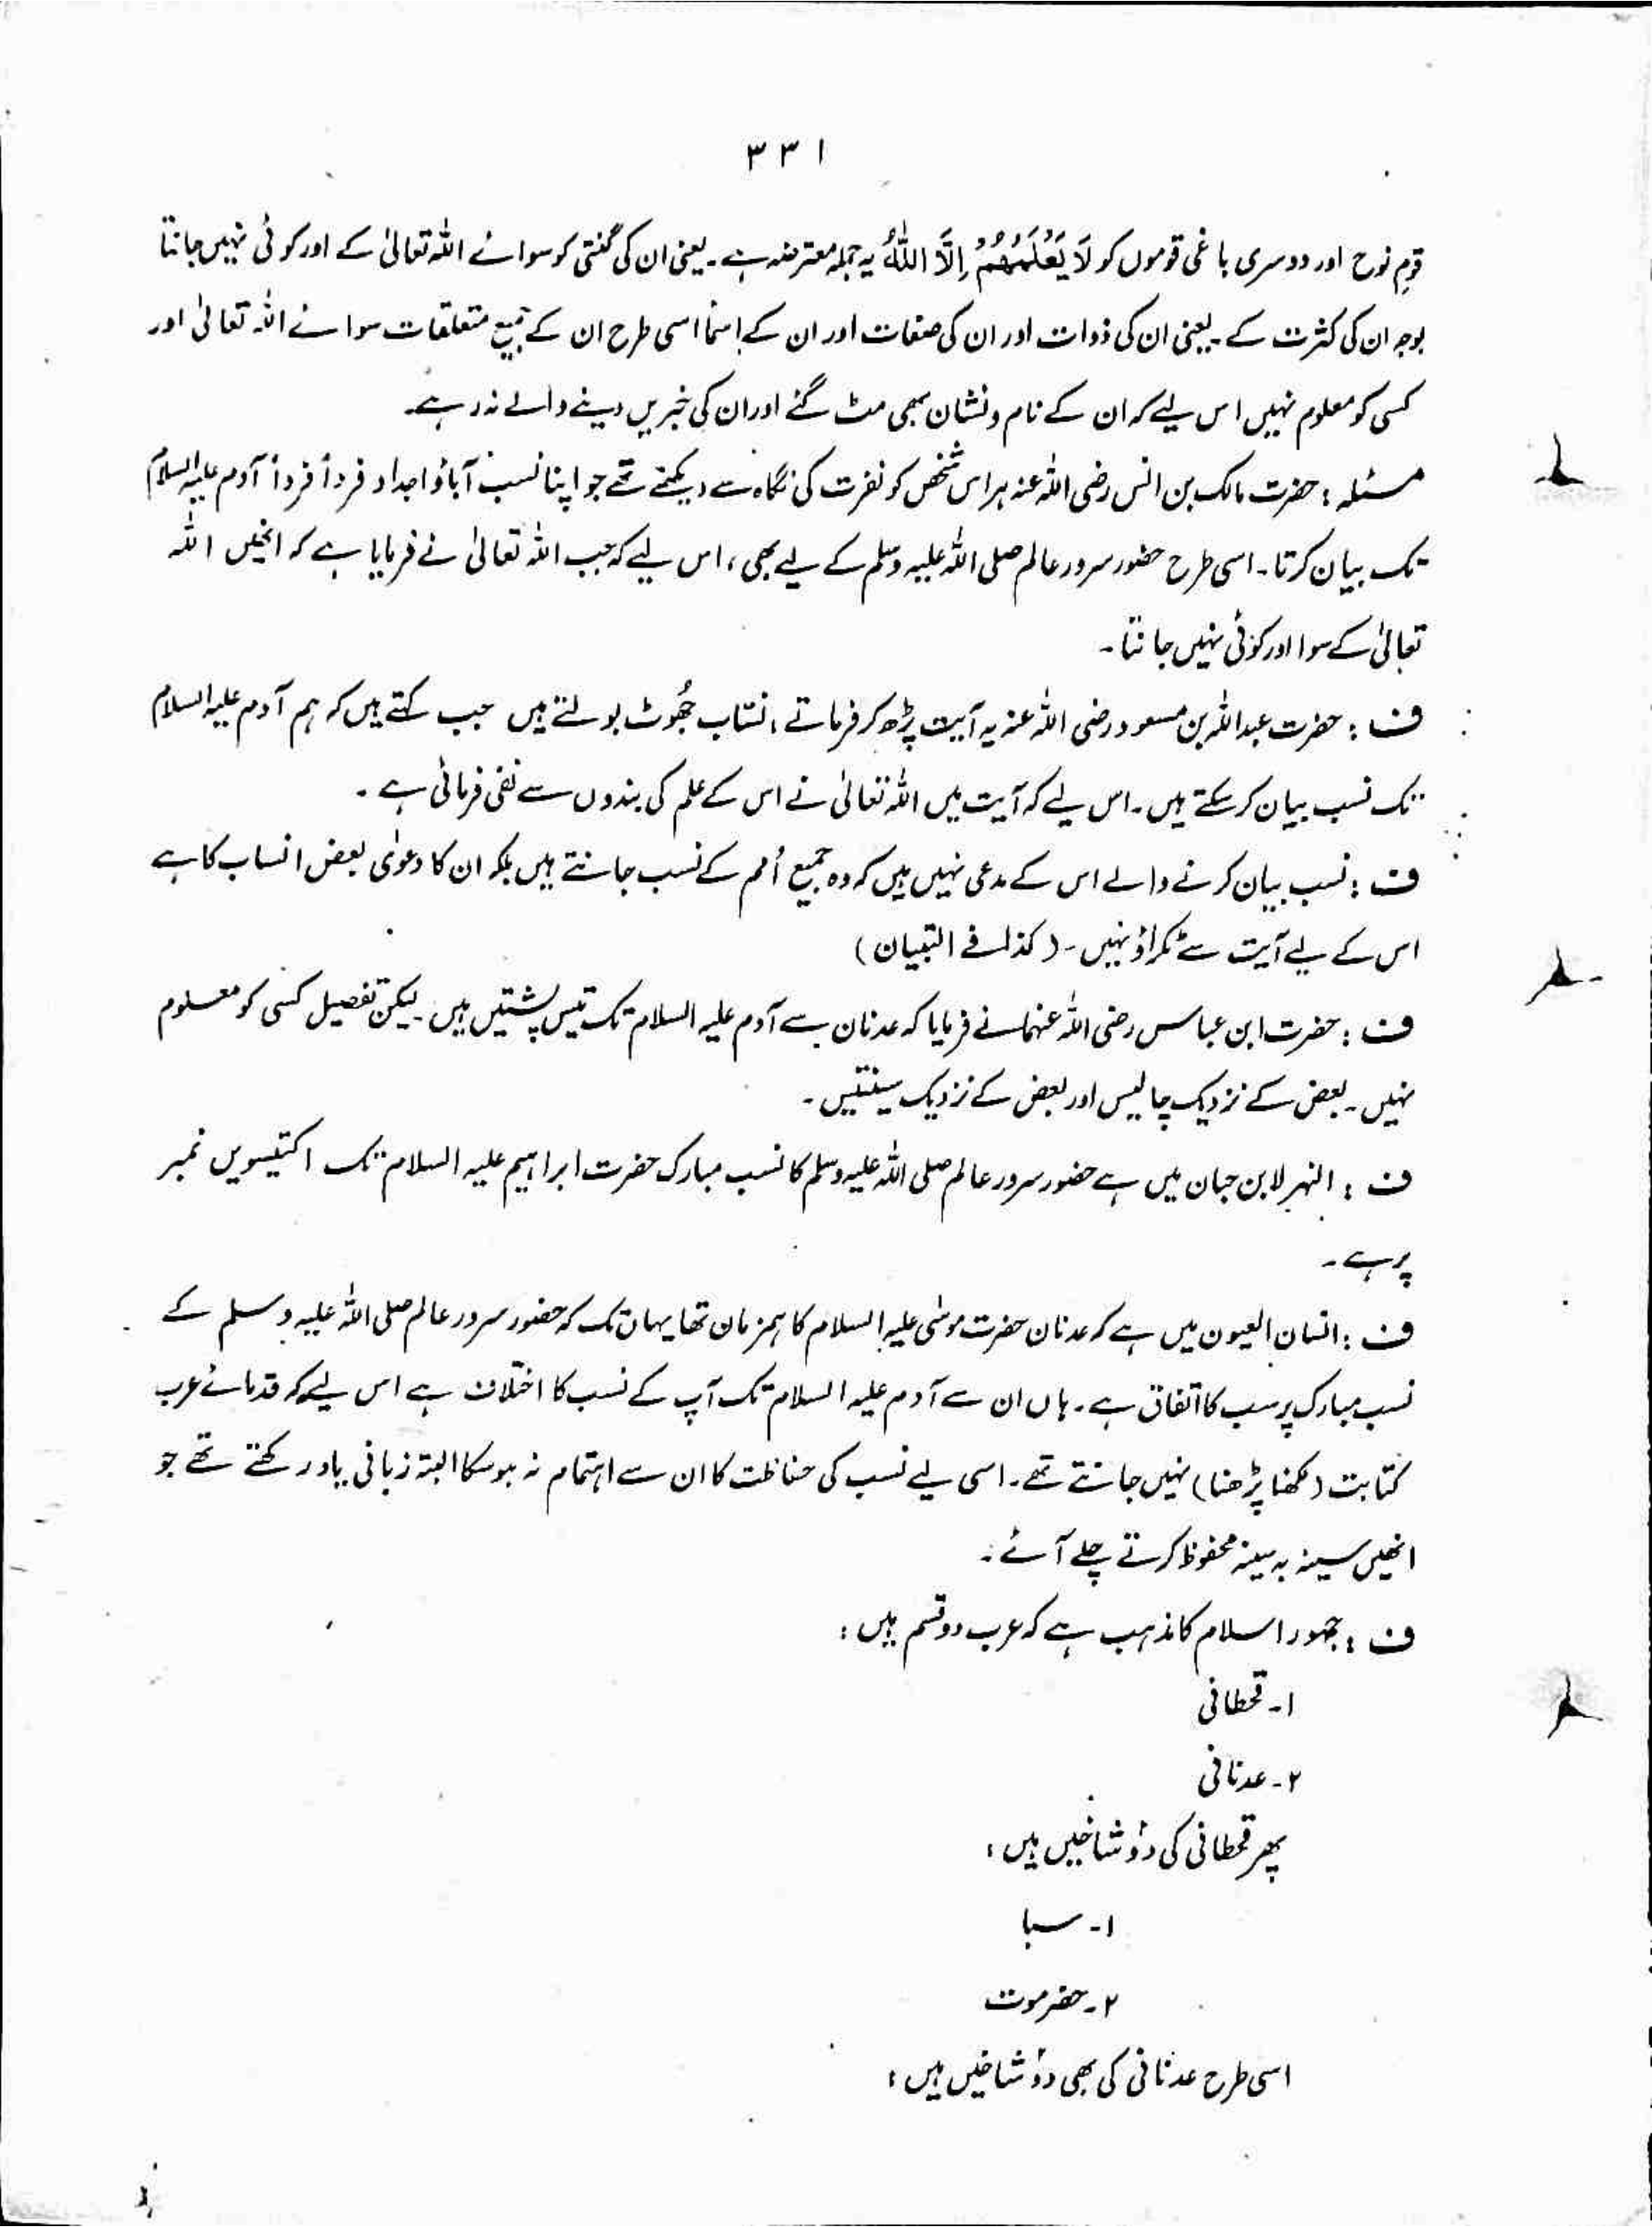 ۳۳۱
قومِ نوح اور دوسری باغی قوموں کو لَا یَعْلَمُھُمْ اِلَّا اللّٰہُ یہ جملہ معترضہ ہے۔ یعنی ان کی گنتی کو سوائے اللہ تعالیٰ کے اور کوئی نہیں جانتا
بوجہ ان کی کثرت کے۔ یعنی ان کی ذوات اور ان کی صفات اور ان کے اسما اسی طرح ان کے جمیع متعلقات سوائے اللہ تعالیٰ اور
کسی کو معلوم نہیں اس لیے کہ ان کے نام و نشان بھی مٹ گئے اور ان کی خبریں دینے والے نہ رہے۔
مسئلہ: حضرت مالک بن انس رضی اللہ عنہ ہر اس شخص کو نفرت کی نگاہ سے دیکھتے تھے جو اپنا نسب آباؤ اجداد فرداً فرداً آدم علیہ السلام
تک بیان کرتا۔ اسی طرح حضور سرور عالم صلی اللہ علیہ وسلم کے لیے بھی، اس لیے کہ جب اللہ تعالیٰ نے فرمایا ہے کہ انھیں اللہ
تعالیٰ کے سوا اور کوئی نہیں جانتا۔
ف: حضرت عبداللہ بن مسعود رضی اللہ عنہ یہ آیت پڑھ کر فرماتے، نسّاب جُھوٹ بولتے ہیں جب کہتے ہیں کہ ہم آدم علیہ السلام
تک نسب بیان کر سکتے ہیں۔ اس لیے کہ آیت میں اللہ تعالیٰ نے اس کے علم کی بندوں سے نفی فرمائی ہے۔
ف: نسب بیان کرنے والے اس کے مدعی نہیں ہیں کہ وہ جمیع اُمم کے نسب جانتے ہیں بلکہ ان کا دعوٰی بعض انساب کا ہے
اس کے لیے آیت سے ٹکراؤ نہیں۔ (کذا فے التبیان)
ف: حضرت ابن عباس رضی اللہ عنہما نے فرمایا کہ عدنان سے آدم علیہ السلام تک تیس پشتیں ہیں۔ لیکن تفصیل کسی کو معلوم
نہیں۔ بعض کے نزدیک چالیس اور بعض کے نزدیک سینتیس۔
ف: النہر لابن حبان میں ہے حضور سرور عالم صلی اللہ علیہ وسلم کا نسب مبارک حضرت ابراہیم علیہ السلام تک اکتیسویں نمبر
پر ہے۔
ف: انسان العیون میں ہے کہ عدنان حضرت موسٰی علیہ السلام کا ہمزمان تھا یہاں تک کہ حضور سرور عالم صلی اللہ علیہ وسلم کے
نسب مبارک پر سب کا اتفاق ہے۔ ہاں ان سے آدم علیہ السلام تک آپ کے نسب کا اختلاف ہے اس لیے کہ قدمائے عرب
کتابت (لکھنا پڑھنا) نہیں جانتے تھے۔ اسی لیے نسب کی حفاظت کا ان سے اہتمام نہ ہو سکا البتہ زبانی یاد رکھتے تھے جو
انھیں سینہ بہ سینہ محفوظ کرتے چلے آئے۔
ف: جمہور اسلام کا مذہب ہے کہ عرب دو قسم ہیں:
۱۔ قحطانی
۲۔ عدنانی
پھر قحطانی کی دو شاخیں ہیں:
۱۔ سبا
۲۔ حضرموت
اسی طرح عدنانی کی بھی دو شاخیں ہیں: